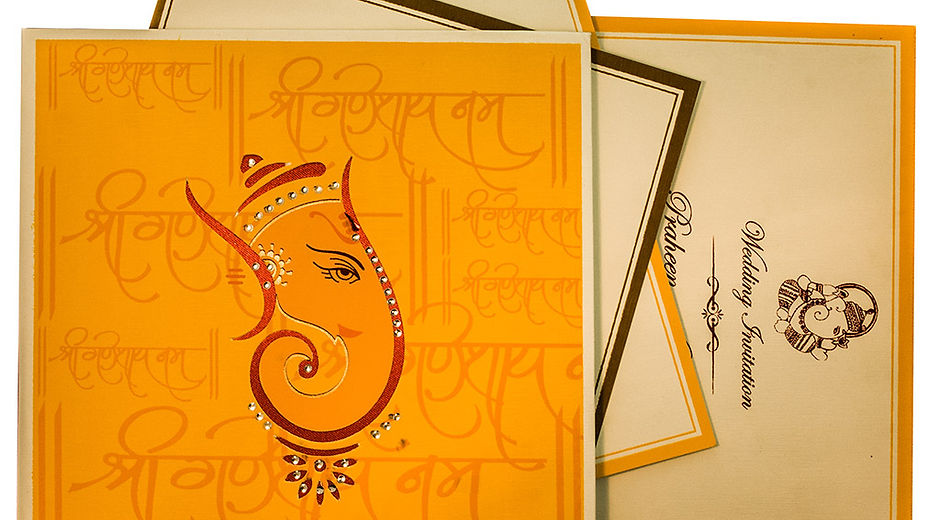 ॥ श्री गणेशाय नम ॥
॥ श्री गणेशाय नम
श्री गणेशाय
॥ श्री गणेशाय नम
॥ श्री गणेशाय नम
श्री गणेशाय नम ॥
गणेशाय नम
श्री गणेशाय नम
Praheen
Wedding Invitation